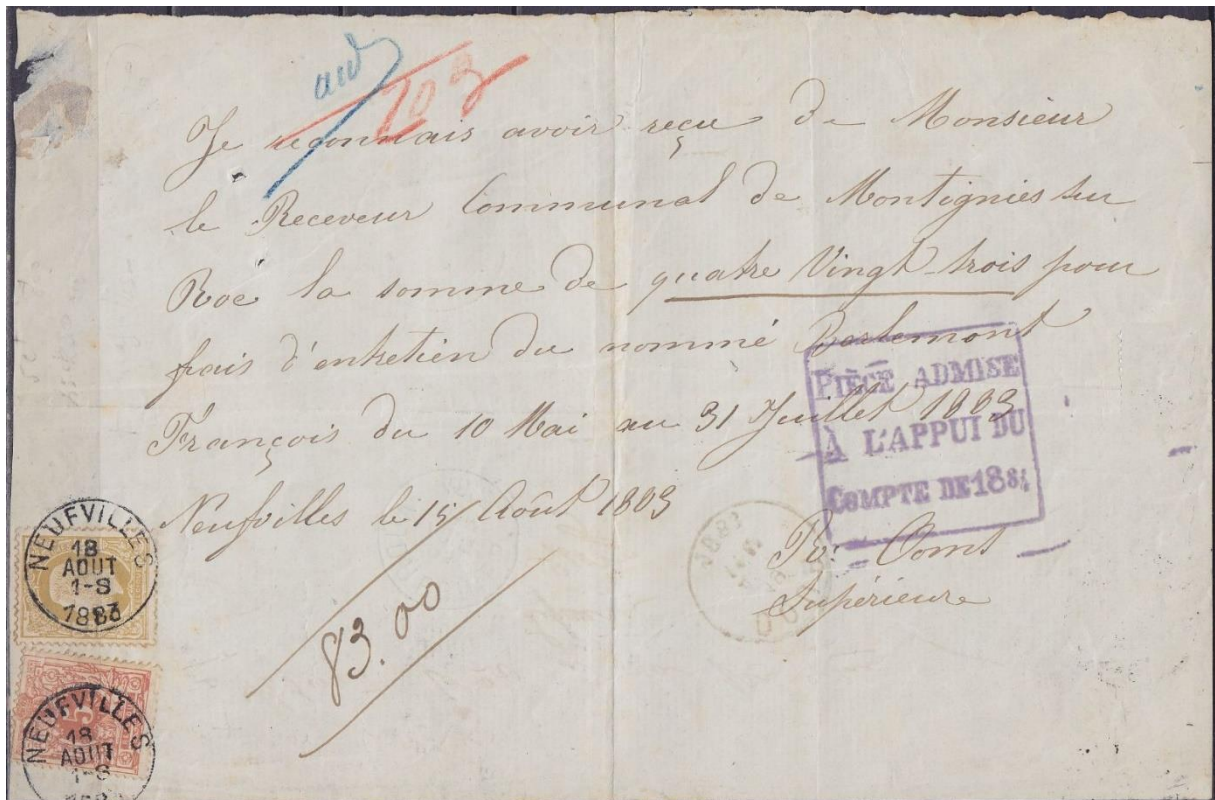 203
Je reconnais avoir reçu de Monsieur
le Receveur Communal de Montignies sur
Roc la somme de quatre Vingt-trois pour
frais d'entretien du nommé Barlemont
François du 10 Mai au 31 Juillet 1883
Neufvilles le 15 Août 1883
83.00
Supérieure
PIÈCE ADMISE
À L'APPUI DU
COMPTE DE 18
NEUFVILLES
18
AOUT
1-S
1883
NEUFVILLES
18
AOUT
1-S